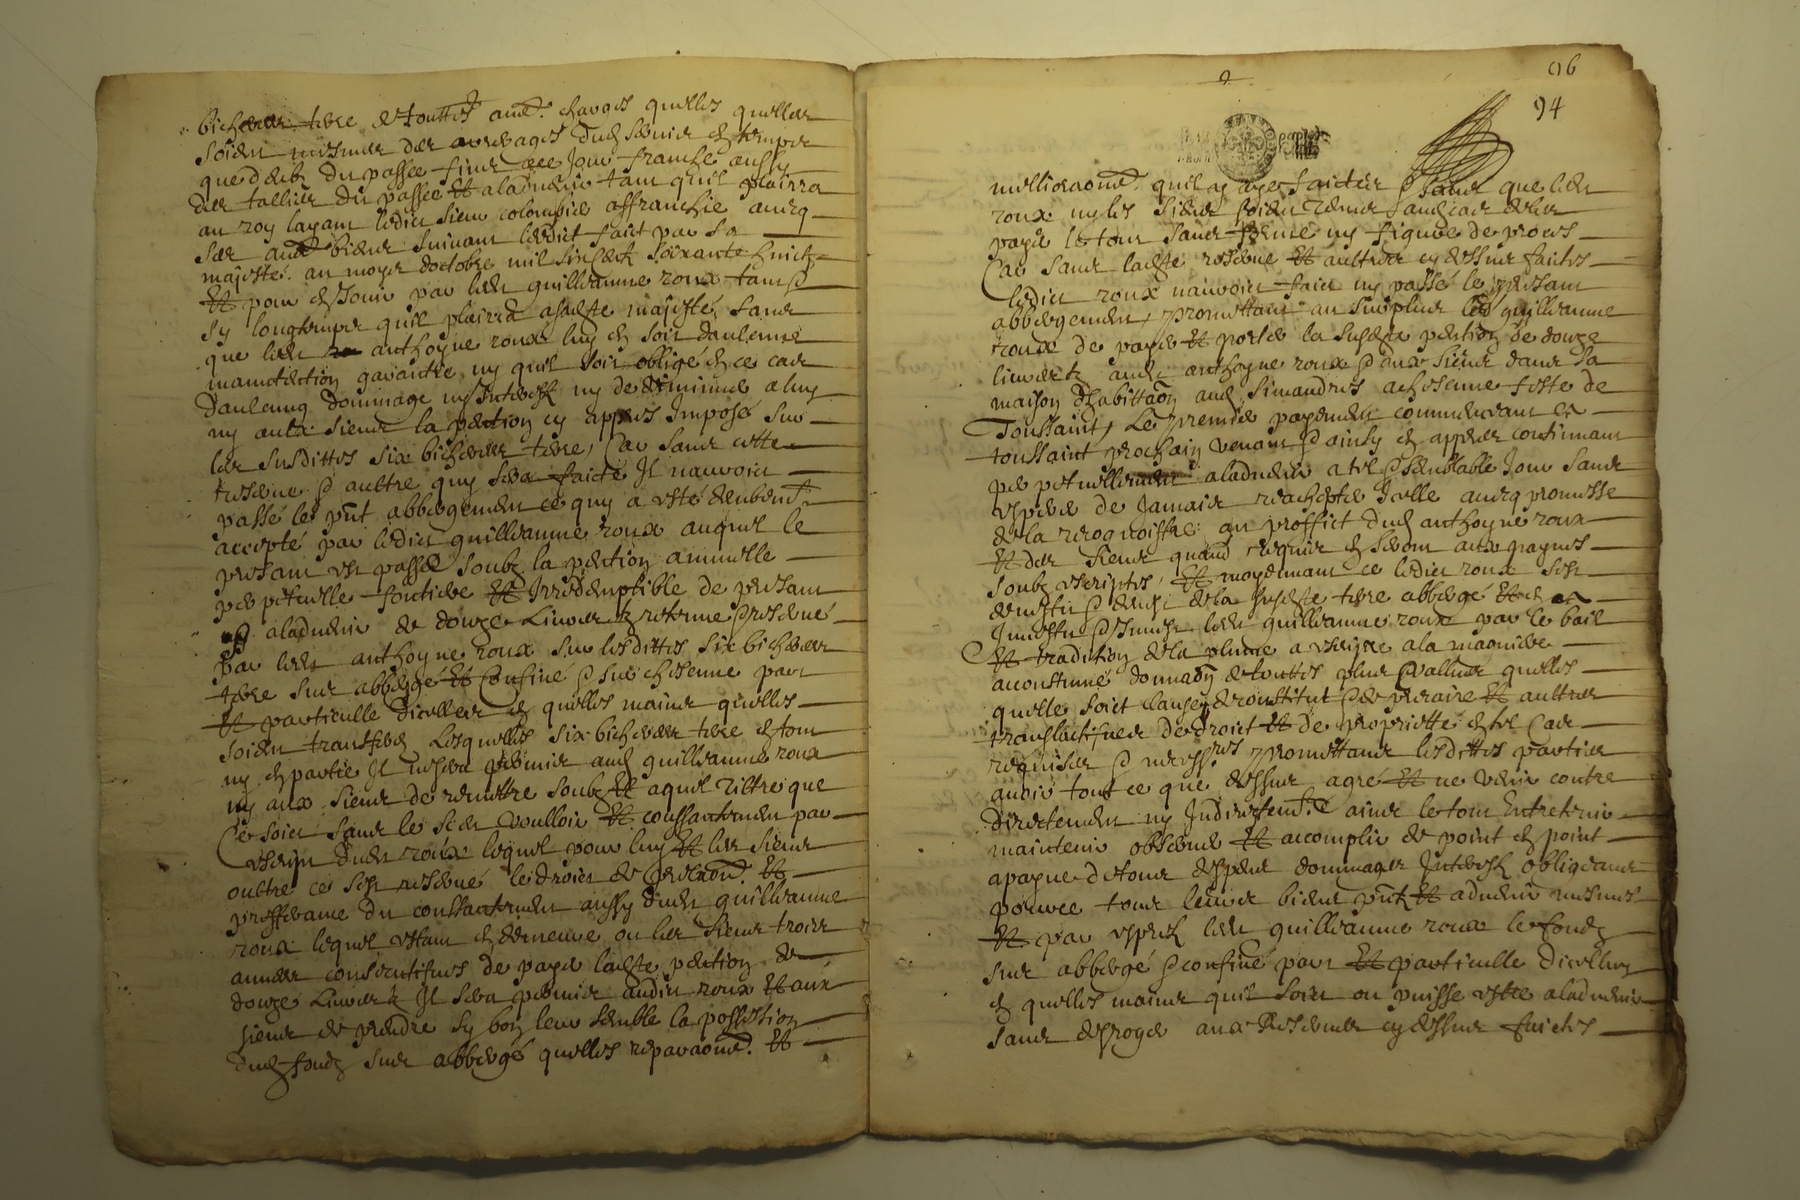 terre & touttes charges quelles quelles
soient mesmes des arreages dud servis &
que debz du passee jour franche aussy
des tallies du passee Et a ladvenir tant quil plairra
au roy layant ledict sieur colompied affranchie avecq
ses biens suivant ledict faict par sa
majesté au moys doctobre mil six soixante huict
Et pour jouir par led guilleaume roux tant
sy longtemps quil plairra a sadte majesté, sans
que led anthoyne roux luy en soit daulcune
manutention garantie ny quil soit obligé en ce cas
Daulcung dommage ny Interest ny de diminuer a luy
ny aulx siens la pention cy appres Imposé sur
les susdittes six bicherees terre, Car sans cette
reserve & aultre quy sera faicte Il nauroict
passé le pnt abbergement ce quy a esté
accepté par ledict guilleaume roux auquel le
present est passée soubz la pention annuelle
perpetuelle fontiere Et Irredemptible de present
a ladvenir de douze Livres retenue & reservé
par led anthoyne roux sur lesdittes six bicherees
terre sus abbergé Et Confiné & sur chascune part
Et particulle dicelles en quelles mains quelles
soient Lesquelles six bicherees terre en tout
ny en partie Il nesera permis aud guilleaume roux
ny aux siens de remettre soubz Et a quel tiltre que
Ce soict sans le voulloir Et consentement par
escript dud roux lequel pour luy Et les siens
oultre ce sest reservé le droict de Et
prefferance du consentement aussy dud guilleaume
roux lequel estant en demeure ou les siens trois
annees consecutifves de payer ladte pention de
douze Livres Il sera permis audict roux Et aux
siens de prendre sy bon leur semble la possession
dud fondz sus abbergé quelles reparaons Et
96
94
quil ay ayes faictes & sans que led
roux ny les siens soient tenus aud cas de les
payer le tout sans forme ny figure de proces
Car sans ladte reserve Et aultres cy dessus faictes
ledict roux nauroict faict ny passé le present
abbergement, promettant au surplus led guilleaume
roux de payer Et porter la susdte pention de douze
livres aud anthoyne roux & aux siens dans sa
maison dhabittaon aud Simandres a chascune feste de
Toussaint, Le premier payement commencant a la
toussaint prochain venant & ainsy en appres continuant
perpetuellement a ladvenir a tel & semblable Jour sans
espoir de Jamais rachepter Icelle avecq promesse
de la recognoistre au proffict dud anthoyne roux
Et des siens quand requis en seront aux paynes
soubz escriptes, Et moyennant ce ledict roux sest
desmestu & desvest de la susdte terre abbergé
Investu led guilleaume roux par le bail
Et tradition de la plume a escripre a la maniere
accoustumé donnaon de touttes plus vallues quelles
quelle soict clauses de constitut & de precaire Et aultres
translatifves de droict Et de proprietté en tel Cas
requises & necessres promettans lesdittes parties
avoir tout ce que dessus agré Et ne venir contre
directement ny Indirectemt ains le tout Entretenir
maintenir observer Et accomplir de point en point
a payne de tous despens dommages Interest obligeans
pour ce tous leurs biens pnt Et advenir mesmes
Et par expres led guilleaume roux le fondz
sus abbergé & confiné part Et particulle dicelluy
en quelles mains quil soict ou puisse estre a ladvenir
sans desroger aux Reserves cy dessus faictes